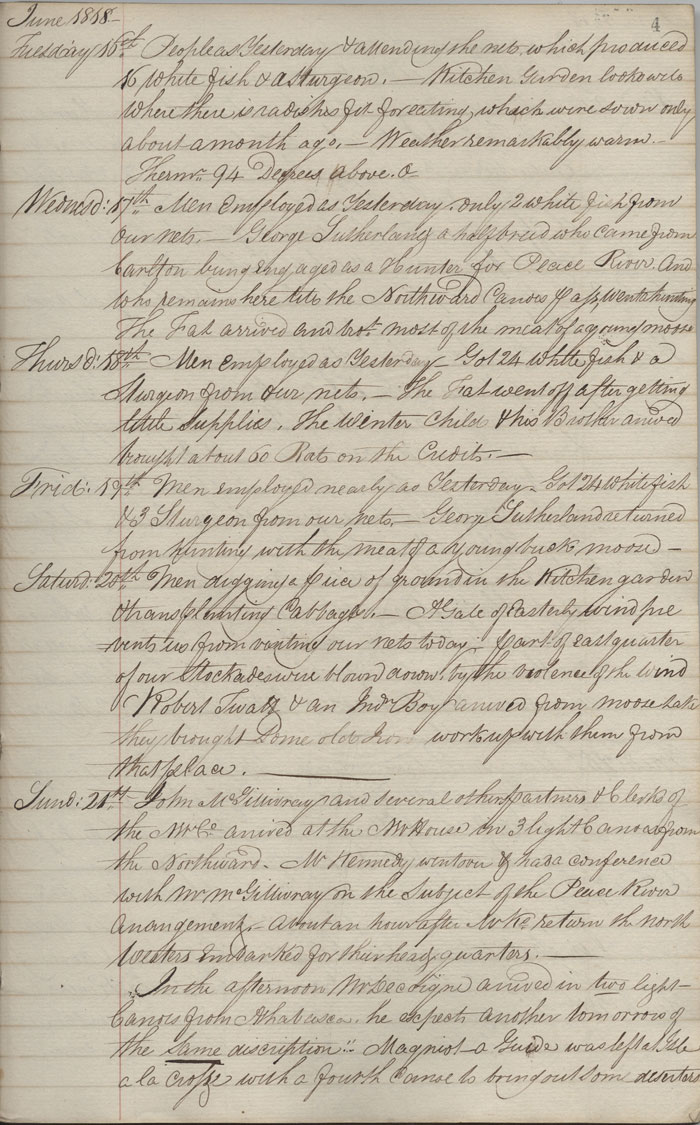 June 1818
4
Tuesday 16th People as Yesterday & attending the nets, which produced
16 White fish & a sturgeon. — Kitchen Garden looks well
Where there is radishes fit for eating, which were sown only
about a month ago. — Weather remarkably warm. —
Thermr. 94 Degrees above. 0
Wednesd: 17th Men Employed as Yesterday. only 2 white fish from
Our nets. — George Sutherland a half breed who came from
Carlton being engaged as a Hunter for Peace River. And
who remains here till the Northward Canoes pass, went a hunting
The Fat arrived and brot. most of the meat of a young moose
Thursd: 18th Men Employed as Yesterday — Got 24 White fish & a
Sturgeon from our nets. — The Fat went off after getting
little supplies. The Winter Child & his Brother arrived
brought about 60 Rats on the Credits. —
Frid: 19th Men employed nearly as Yesterday. Got 24 White fish
& 3 Sturgeon from our nets. — George Sutherland returned
from hunting with the meat of a Young buck moose. —
Saturd: 20th Men digging a piece of ground in the Kitchen garden
& transplanting Cabbage. — A Gale of Easterly wind pre
vents us from visiting our nets today — part of east quarter
of our Stockades were blown down by the violence of the Wind
Robert Twatt & an Indn Boy arrived from Moose Lake
they brought Some old Iron work up with them from
that place.
Sund: 21st John McGillivray and several other partners & Clerks of
the NWCo. arrived at the NW House in 3 light Canoes from
the Northward. Mr Kennedy went over & had a conference
with Mr McGillivray on the Subject of the Peace River
arrangement. — about an hour after Mr Ks. return the north
Westers Embarked for their head quarters. —
In the afternoon Mr Decoigne arrived in two light
Canoes from Athabasca. he expects another tomorrow of
the same discription!! Magniot a Guide was left at Isle
a la Crosse with a fourth Canoe to bring out some deserters